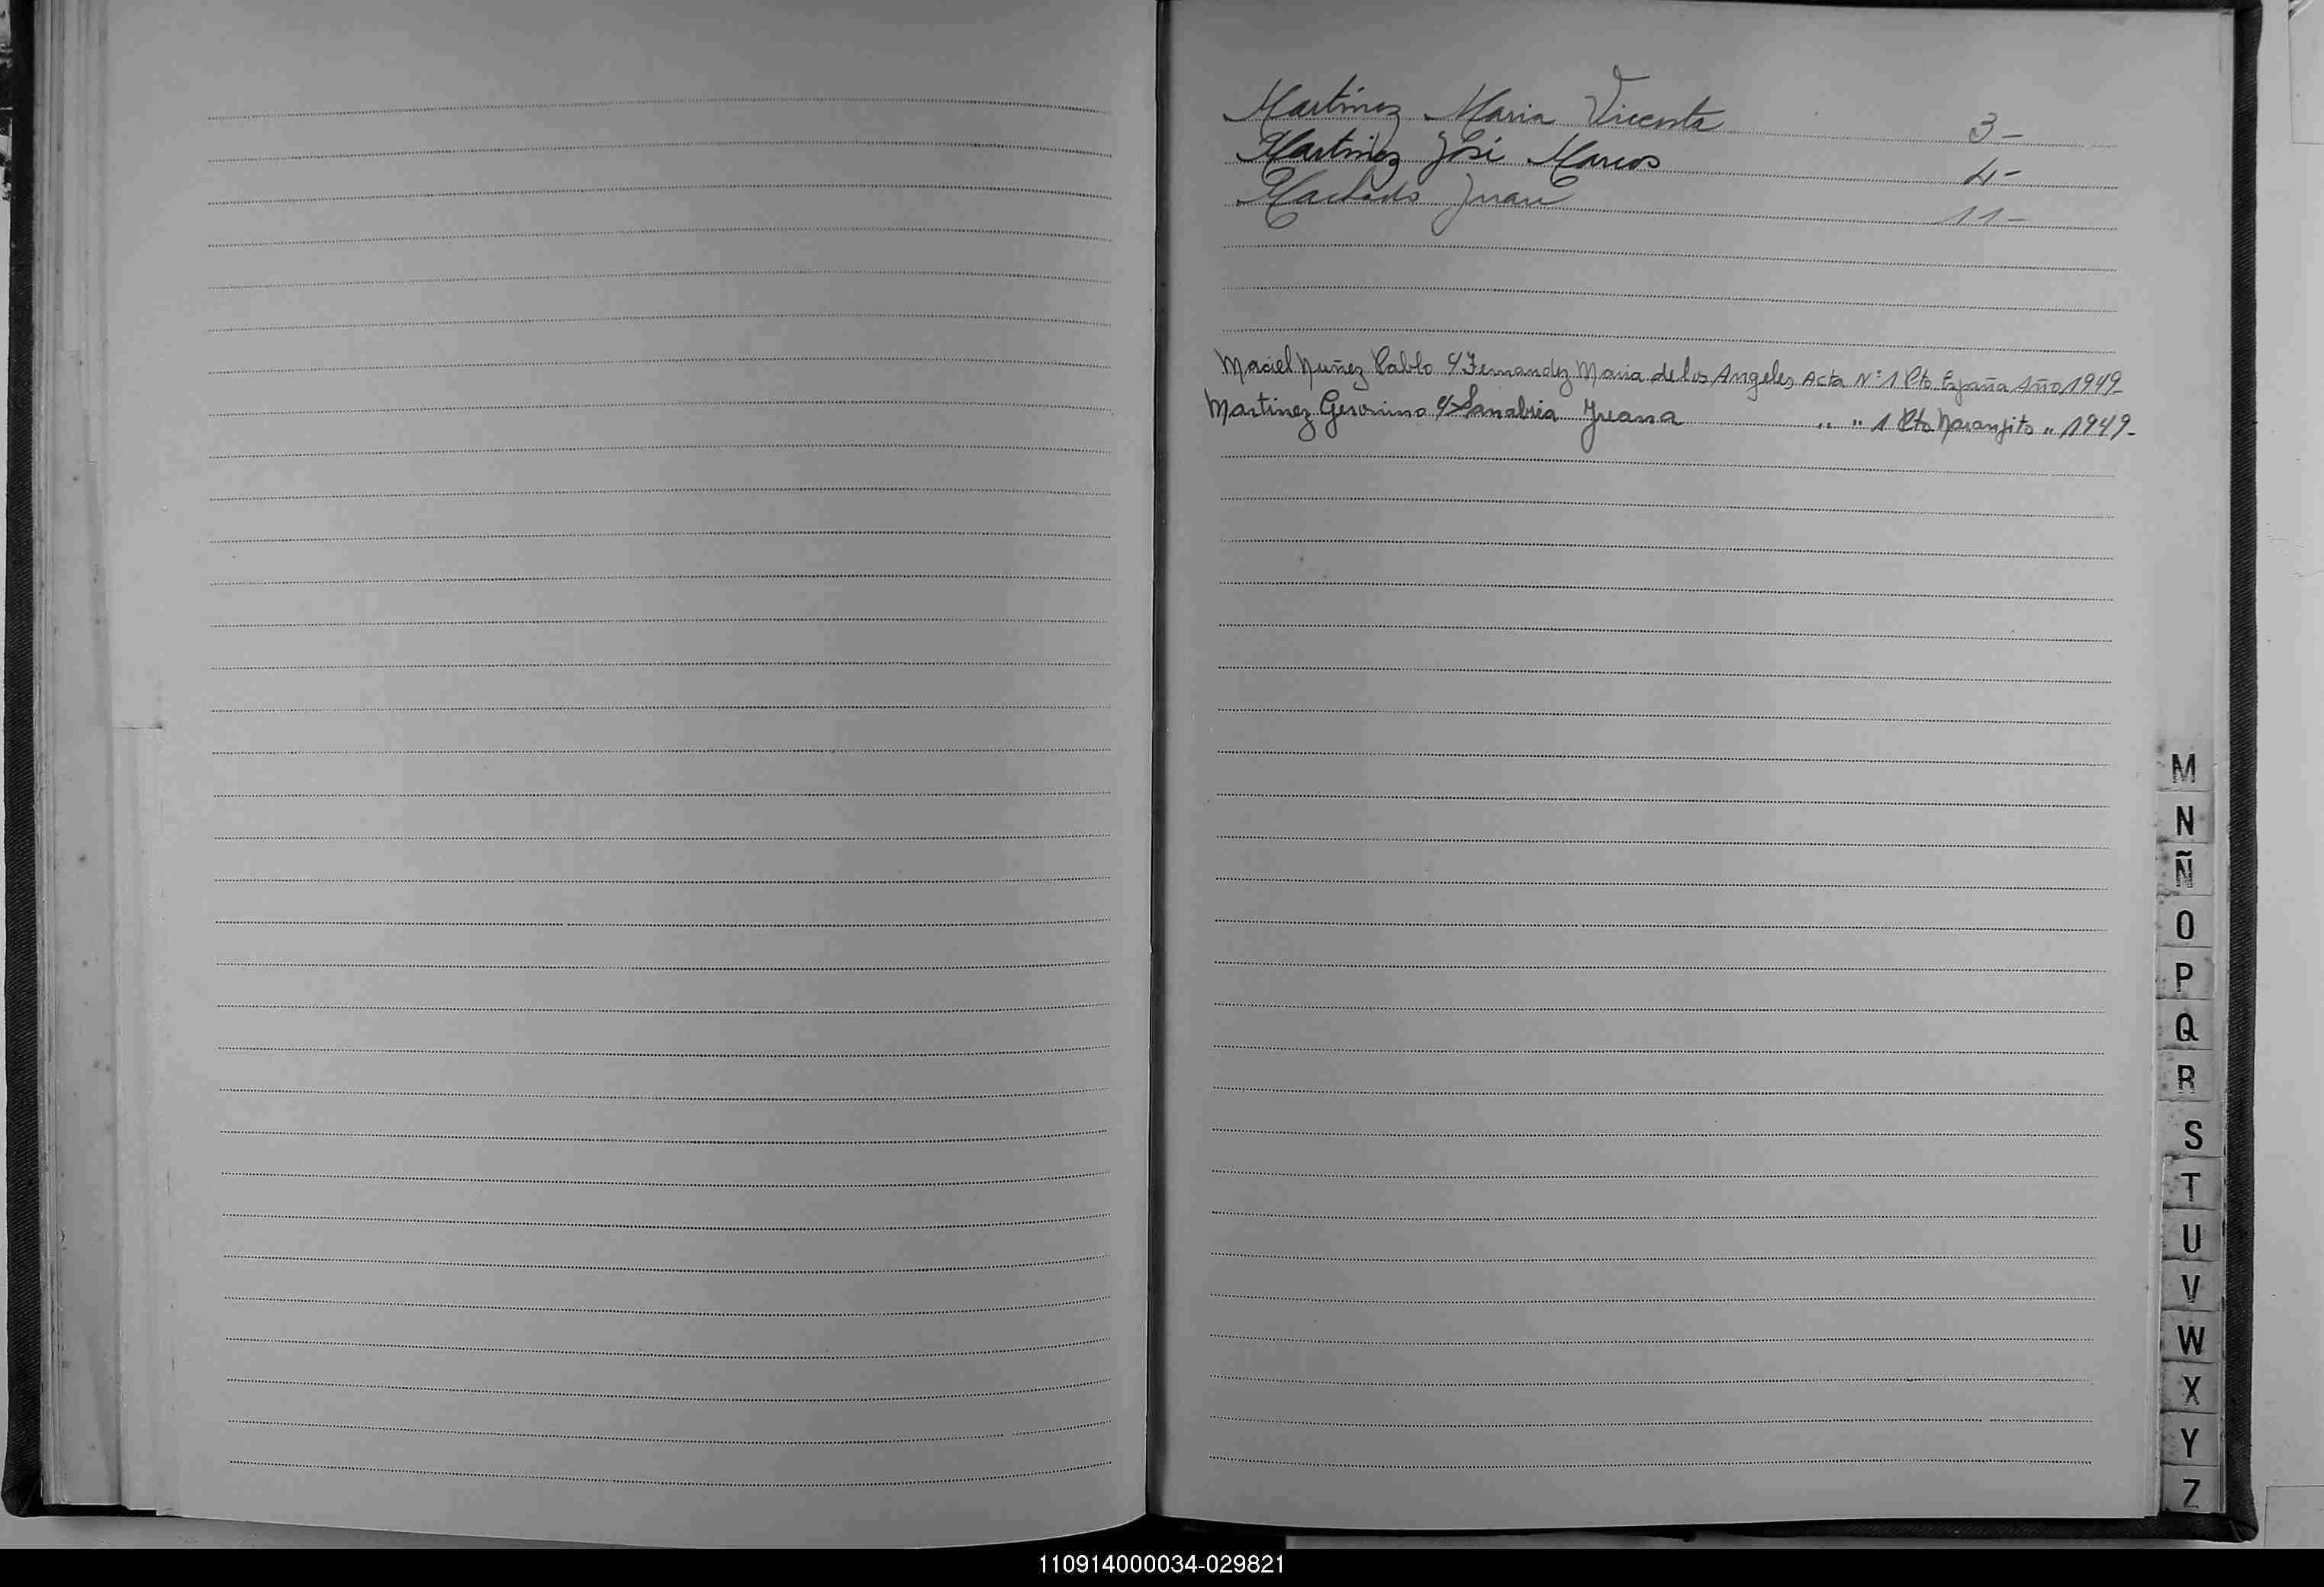 Martinez Maria Vicenta 3-
Martinez José Marcos 4-
Machado Juan 11-
Maciel Nuñez Pablo c/ Fernandez Maria de los Angeles Acta Nº 1 Pto España Año 1949-
Martinez Geronimo c/ Sanabria Juana " " 1 Pto Naranjito " 1949-
M
N
Ñ
O
P
Q
R
S
T
U
V
W
X
Y
Z
110914000034-029821